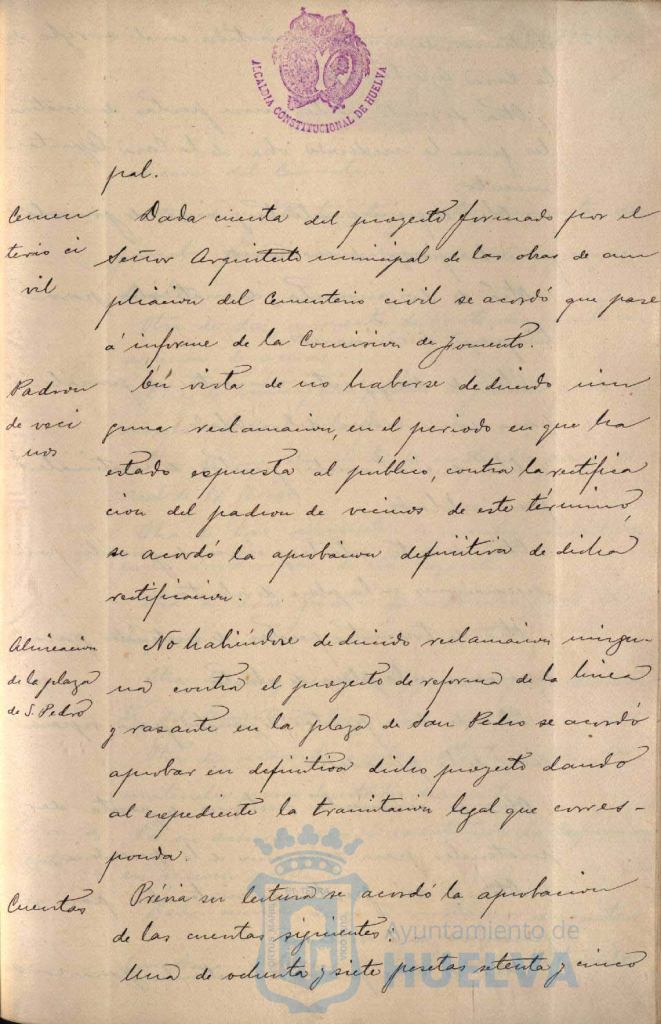 ALCALDIA CONSTITUCIONAL DE HUELVA
pal.
Cemen
terio ci
vil
Dada cuenta del proyecto formado por el
Señor Arquitecto municipal de las obras de am
pliacion del Cementerio civil se acordó que pase
á informe de la Comision de Fomento.
Padron
de veci
nos
En vista de no haberse deducido nin
guna reclamacion, en el periodo en que ha
estado expuesta al público, contra la rectifica
cion del padron de vecinos de este término,
se acordó la aprobacion definitiva de dicha
rectificacion.
Alineacion
de la plaza
de S. Pedro
No habiéndose deducido reclamacion ningu-
na contra el proyecto de reforma de la linea
y rasante en la plaza de San Pedro se acordó
aprobar en definitiva dicho proyecto dando
al expediente la tramitacion legal que corres-
ponda.
Cuentas
Prévia su lectura se acordó la aprobacion
de las cuentas siguientes:
Una de ochenta y siete pesetas setenta y cinco
Ayuntamiento de
HUELVA